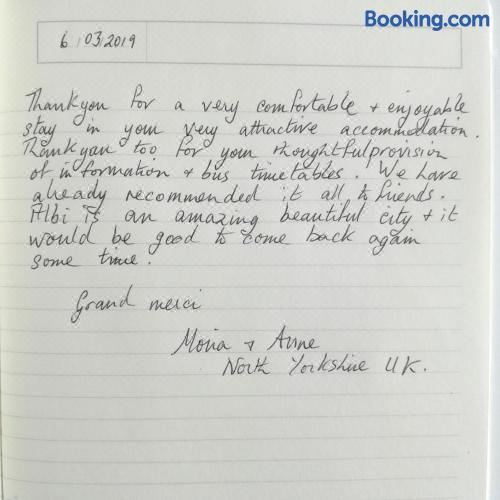 Booking.com
6 03 2019
Thankyou for a very comfortable + enjoyable
stay in your very attractive accommodation.
Thankyou too for your thoughtful provision
of information + bus timetables. We have
already recommended it all to friends.
Albi is an amazing beautiful city + it
would be good to come back again
some time.
Grand merci
Moira + Anne
North Yorkshire UK.